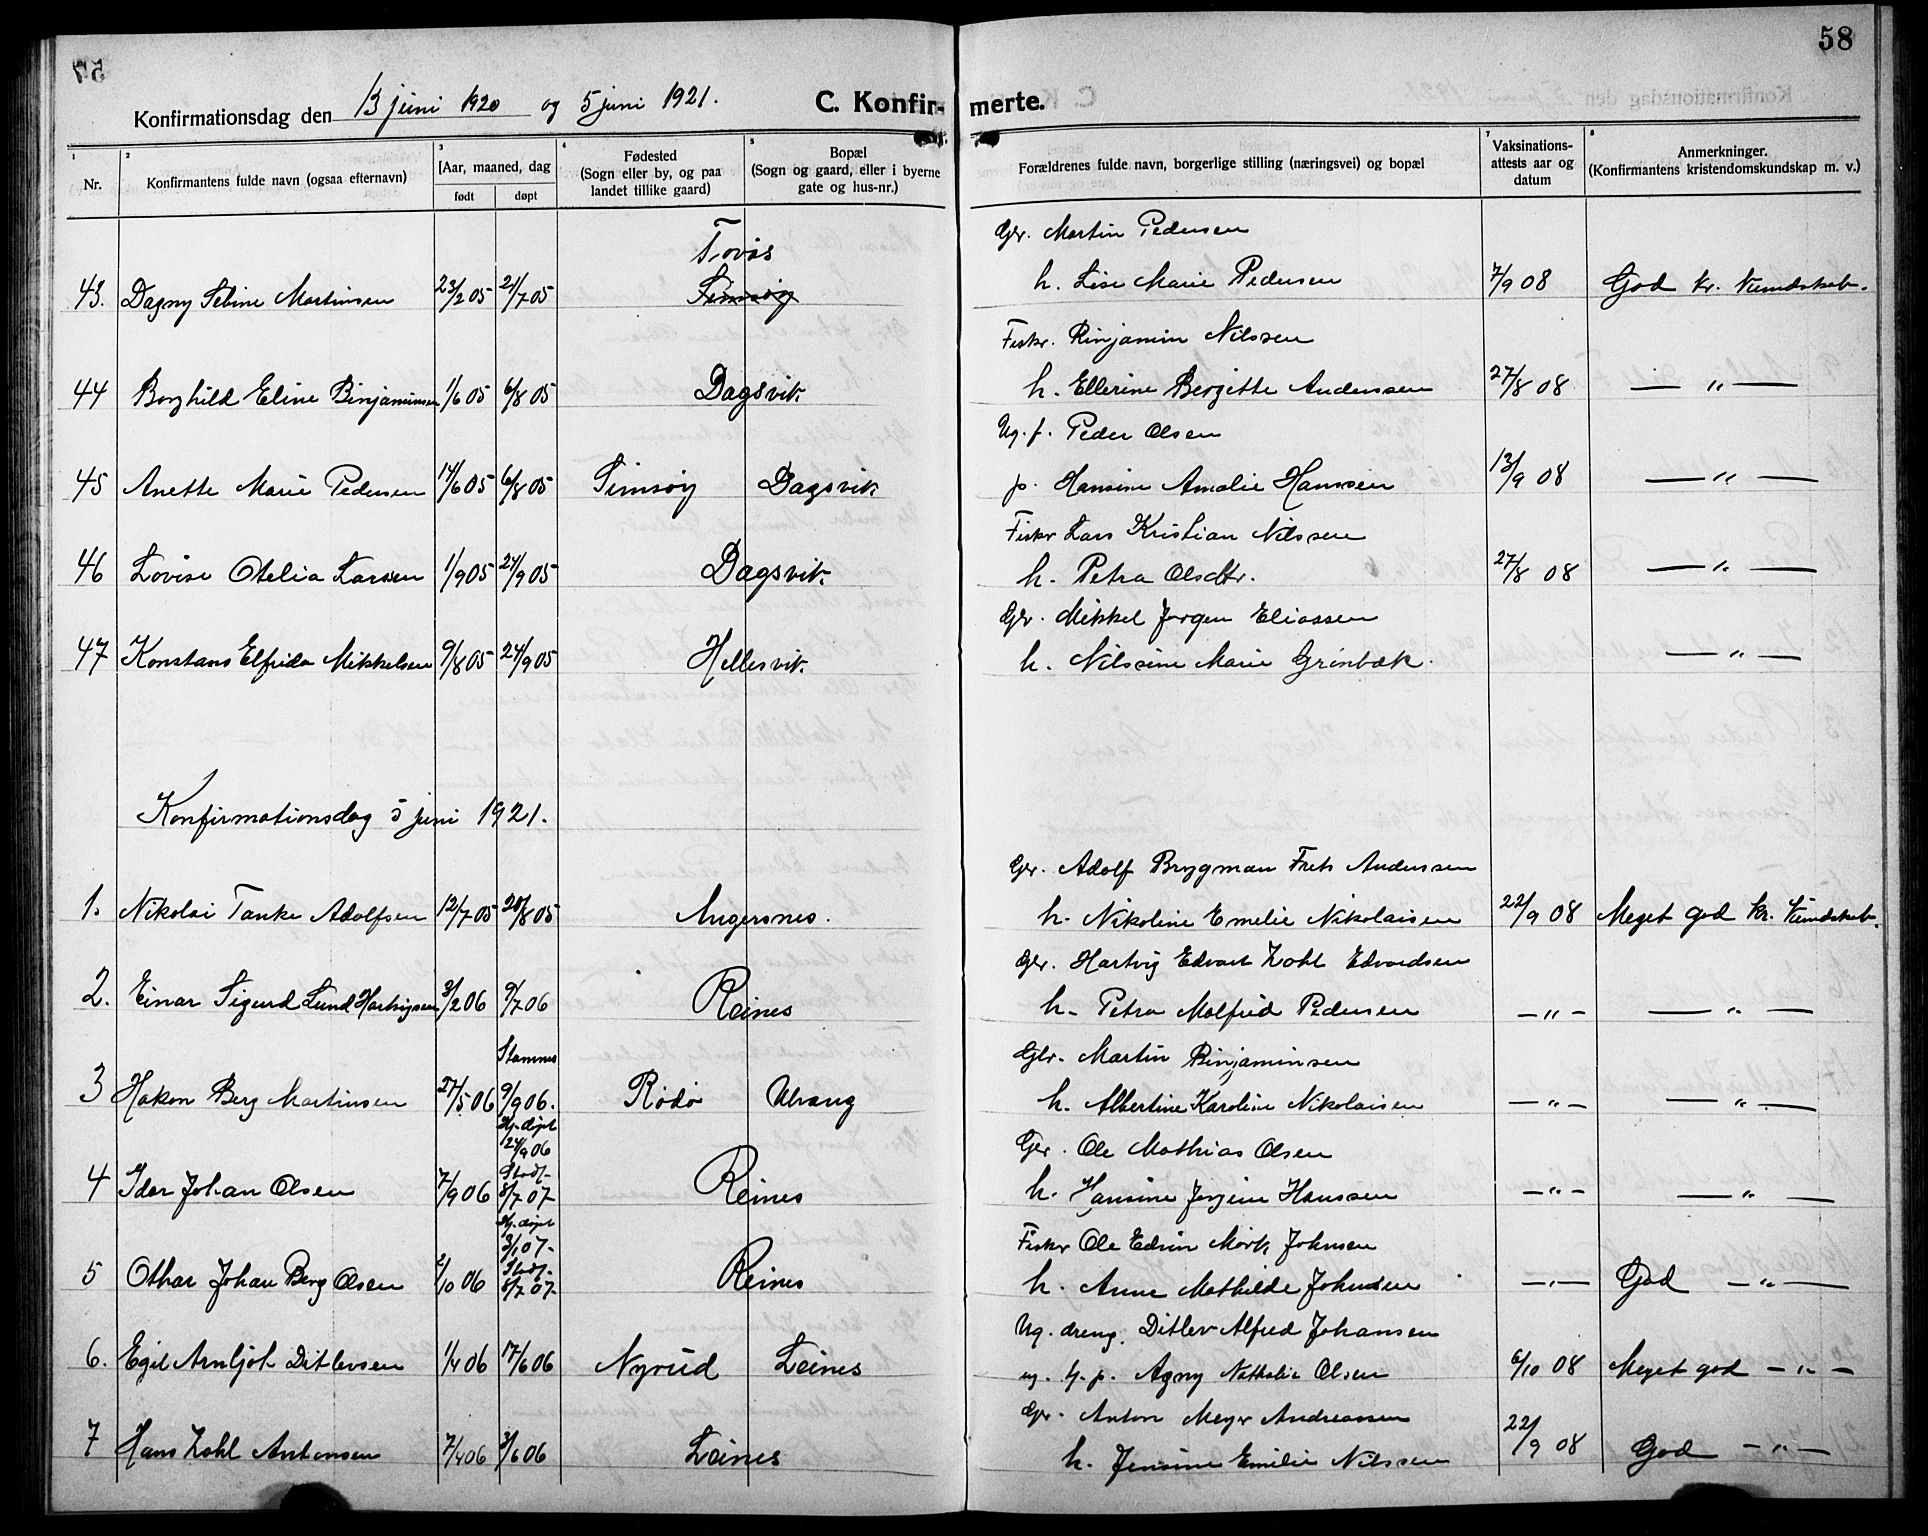 58
Konfirmationsdag den 13 juni 1920 og 5 juni 1921. C. Konfir- merte.
1 2 3 4 5 7 8
Nr. Konfirmantens fulde navn (ogsaa efternavn) Aar, maaned, dag født døpt Fødested (Sogn eller by, og paa landet tillike gaard) Bopæl (Sogn og gaard, eller i byerne gate og hus-nr.) Forældrenes fulde navn, borgerlige stilling (næringsvei) og bopæl Vaksinations-attests aar og datum Anmerkninger. (Konfirmantens kristendomskundskap m. v.)
Tovås Gr. Martin Pedersen
43. Dagny Sebine Martinsen 23/2 05 2/7 05 h. Lise Marie Pedersen 7/9 08 God kr. kundskab.
Fisker. Binjamin Nilssen
44 Borghild Eline Binjaminsen 1/6 05 6/8 05 Dagsvik h. Ellerine Bergitte Anderssen 27/8 08 — " —
Ug. f. Peder Olsen
45 Anette Marie Pedersen 14/6 05 6/8 05 Simsøy Dagsvik p. Hansine Amalie Hanssen 13/9 08 — " —
Fiskr Lars Kristian Nilssen
46 Lovise Otelia Larssen 1/9 05 24/9 05 Dagsvik h. Petra Olsdtr. 27/8 08 — " —
Gr. Mikkel Jørgen Eliassen
47 Konstans Elfrida Mikkelsen 9/8 05 24/9 05 Hellesvik h. Nilsine Marie Grønbæk. — " —
Konfirmationsdag 5 juni 1921.
Gr. Adolf Brygman Frits Anderssen
1. Nikolai Tanke Adolfsen 12/7 05 20/8 05 Angersnes. h. Nikoline Emelie Nikolaisen 22/9 08 Meget god kr. kundskab.
Gr. Hartvig Edvart Zohl Edvardsen
2. Einar Sigurd Lund Hartvigsen 3/2 06 9/7 06 Reines h. Petra Malfrid Pedersen — " — — " —
Stamnes Gr. Martin Binjaminsen
3 Hakon Berg Martinsen 27/5 06 9/9 06. Rødø Alvang h. Albertine Karoline Nikolaisen — " — — " —
Hj. døpt 24/9 06 Gr. Ole Mathias Olsen
4 Idar Johan Olsen 7/9 06 Stadf. 8/7 07 Reines h. Hansine Jørgine Hanssen — " — — " —
Hj. døpt 3/1 07 Fiskr Ole Edvin Mørk Johnsen
5 Othar Johan Berg Olsen 2/10 06 Stadf. 8/7 07 Reines h. Anna Mathilde Johnsen — " — God — " —
Ug. dreng. Ditlev Alfred Johansen
6. Egil Arnljot Ditlevsen 1/4 06 17/6 06 Nyrud Leines ug. tj. p. Agny Nathalie Olsen 6/10 08 Meget god — " —
Gr. Anton Meyer Andreassen
7 Hans Zohl Antonsen 7/4 06 3/6 06 Leines h. Jensine Emilie Nilssen 22/9 08 God — " —